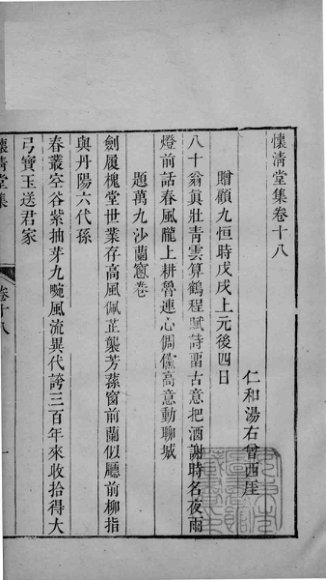 懷清堂集卷十八
仁和湯右曾西厓
贈顧九恒時戊戌上元後四日
八十翁眞壯青雲算鶴程賦詩畱古意把酒謝時名夜雨
燈前話春風隴上耕魯連心倜儻高意動聊城
題萬九沙蘭窻卷
劍履槐堂世業存高風佩芷襲芳蓀窗前蘭似廳前柳指
與丹陽六代孫
春叢空谷紫抽芽九畹風流異代誇三百年來收拾得大
弓寶玉送君家
懷清堂集
卷十八